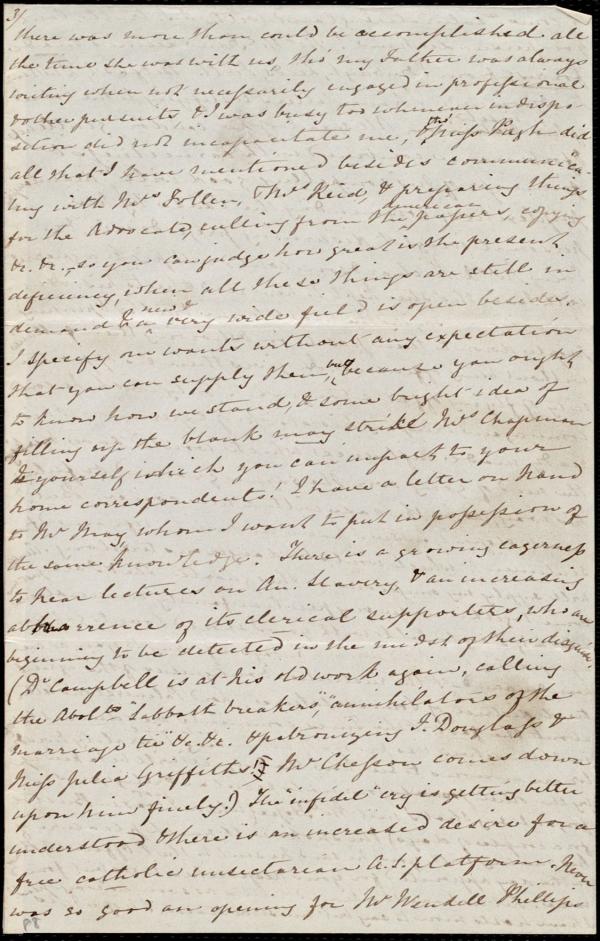 3/
there was more than could be accomplished all
the time she was with us, tho' my Father was always
writing when not necessarily engaged in professional
& other pursuits, & I was busy too whenever indispo-
sition did not incapacitate me, & Miss Pugh did
all that I have mentioned besides communica-
ting with Mrs Follen, Mrs Reid, & preparing things
for the Advocate, culling from the American papers, copying
&c. &c., so you can judge how great is the present
deficiency, when all these things are still in
demand & a new & very wide field is open besides.
I specify our wants without any expectation
that you can supply them, but because you ought
to know how we stand, & some bright idea of
filling up the blank may strike Mrs Chapman
& yourself which you can impart to your
home correspondents! I have a letter on hand
to Mr May, whom I want to put in possession of
the same knowledge. There is a growing eagerness
to hear lectures on Am. Slavery, & an increasing
abhorrence of its clerical supporters, who are
beginning to be detected in the midst of their disguise.
(Dr Campbell is at his old work again, calling
the Abolts "Sabbath breakers," "annihilators of the
marriage tie" &c. &c. & patronizing F. Douglass &
Miss Julia Griffiths!! Mr Chesson comes down
upon him finely.) The "infidel" cry is getting better
understood & there is an increased desire for a
free catholic unsectarian A.S. platform. Never
was so good an opening for Mr Wendell Phillips